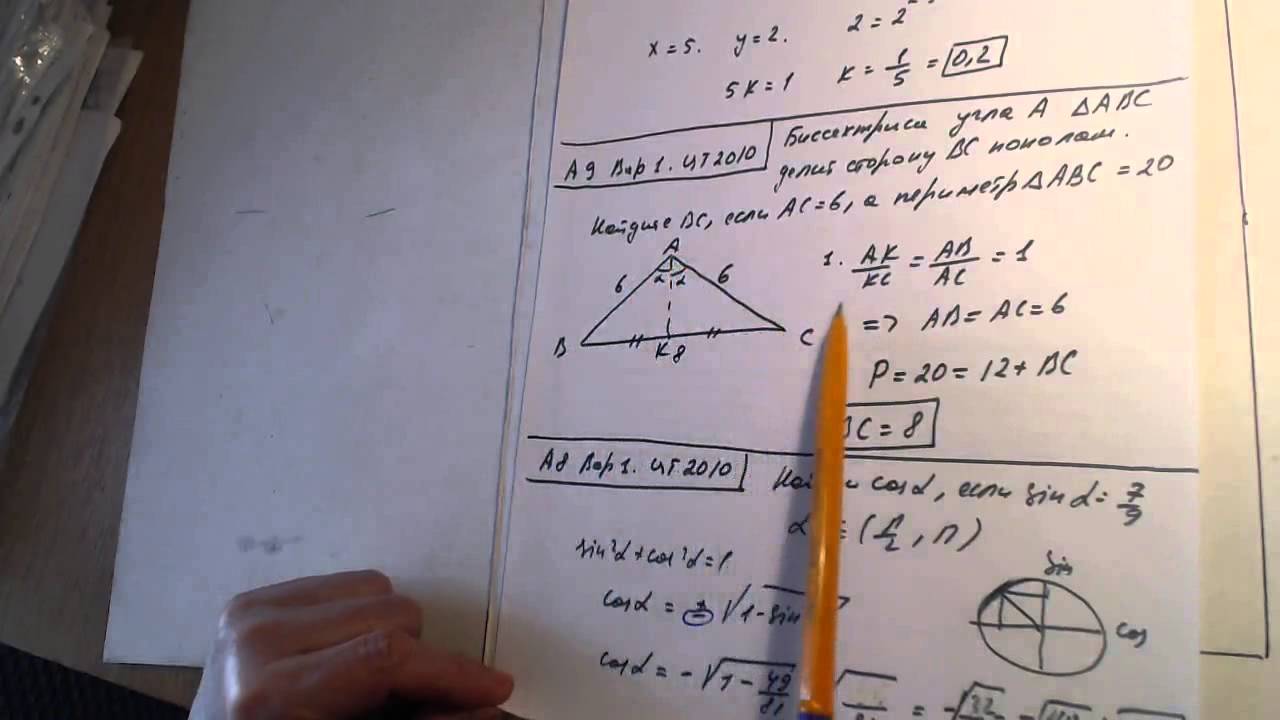 x = 5. y = 2. 2 = 2
5K = 1 K = 1/5 = 0,2
A9 Вар 1. ЦТ 2010
Биссектриса угла A △ABC
делит сторону BC пополам.
Найдите BC, если AC = 6, а периметр △ABC = 20
A
6 α α 6
B K 8 C
1. AK/KC = AB/AC = 1
=> AB = AC = 6
P = 20 = 12 + BC
BC = 8
A8 Вар 1. ЦТ 2010
cosα, если sinα = 7/9
α (π/2, π)
sin²α + cos²α = 1
cosα = ± √1 - sin
sin
cos
cosα = - √1 - 49/81